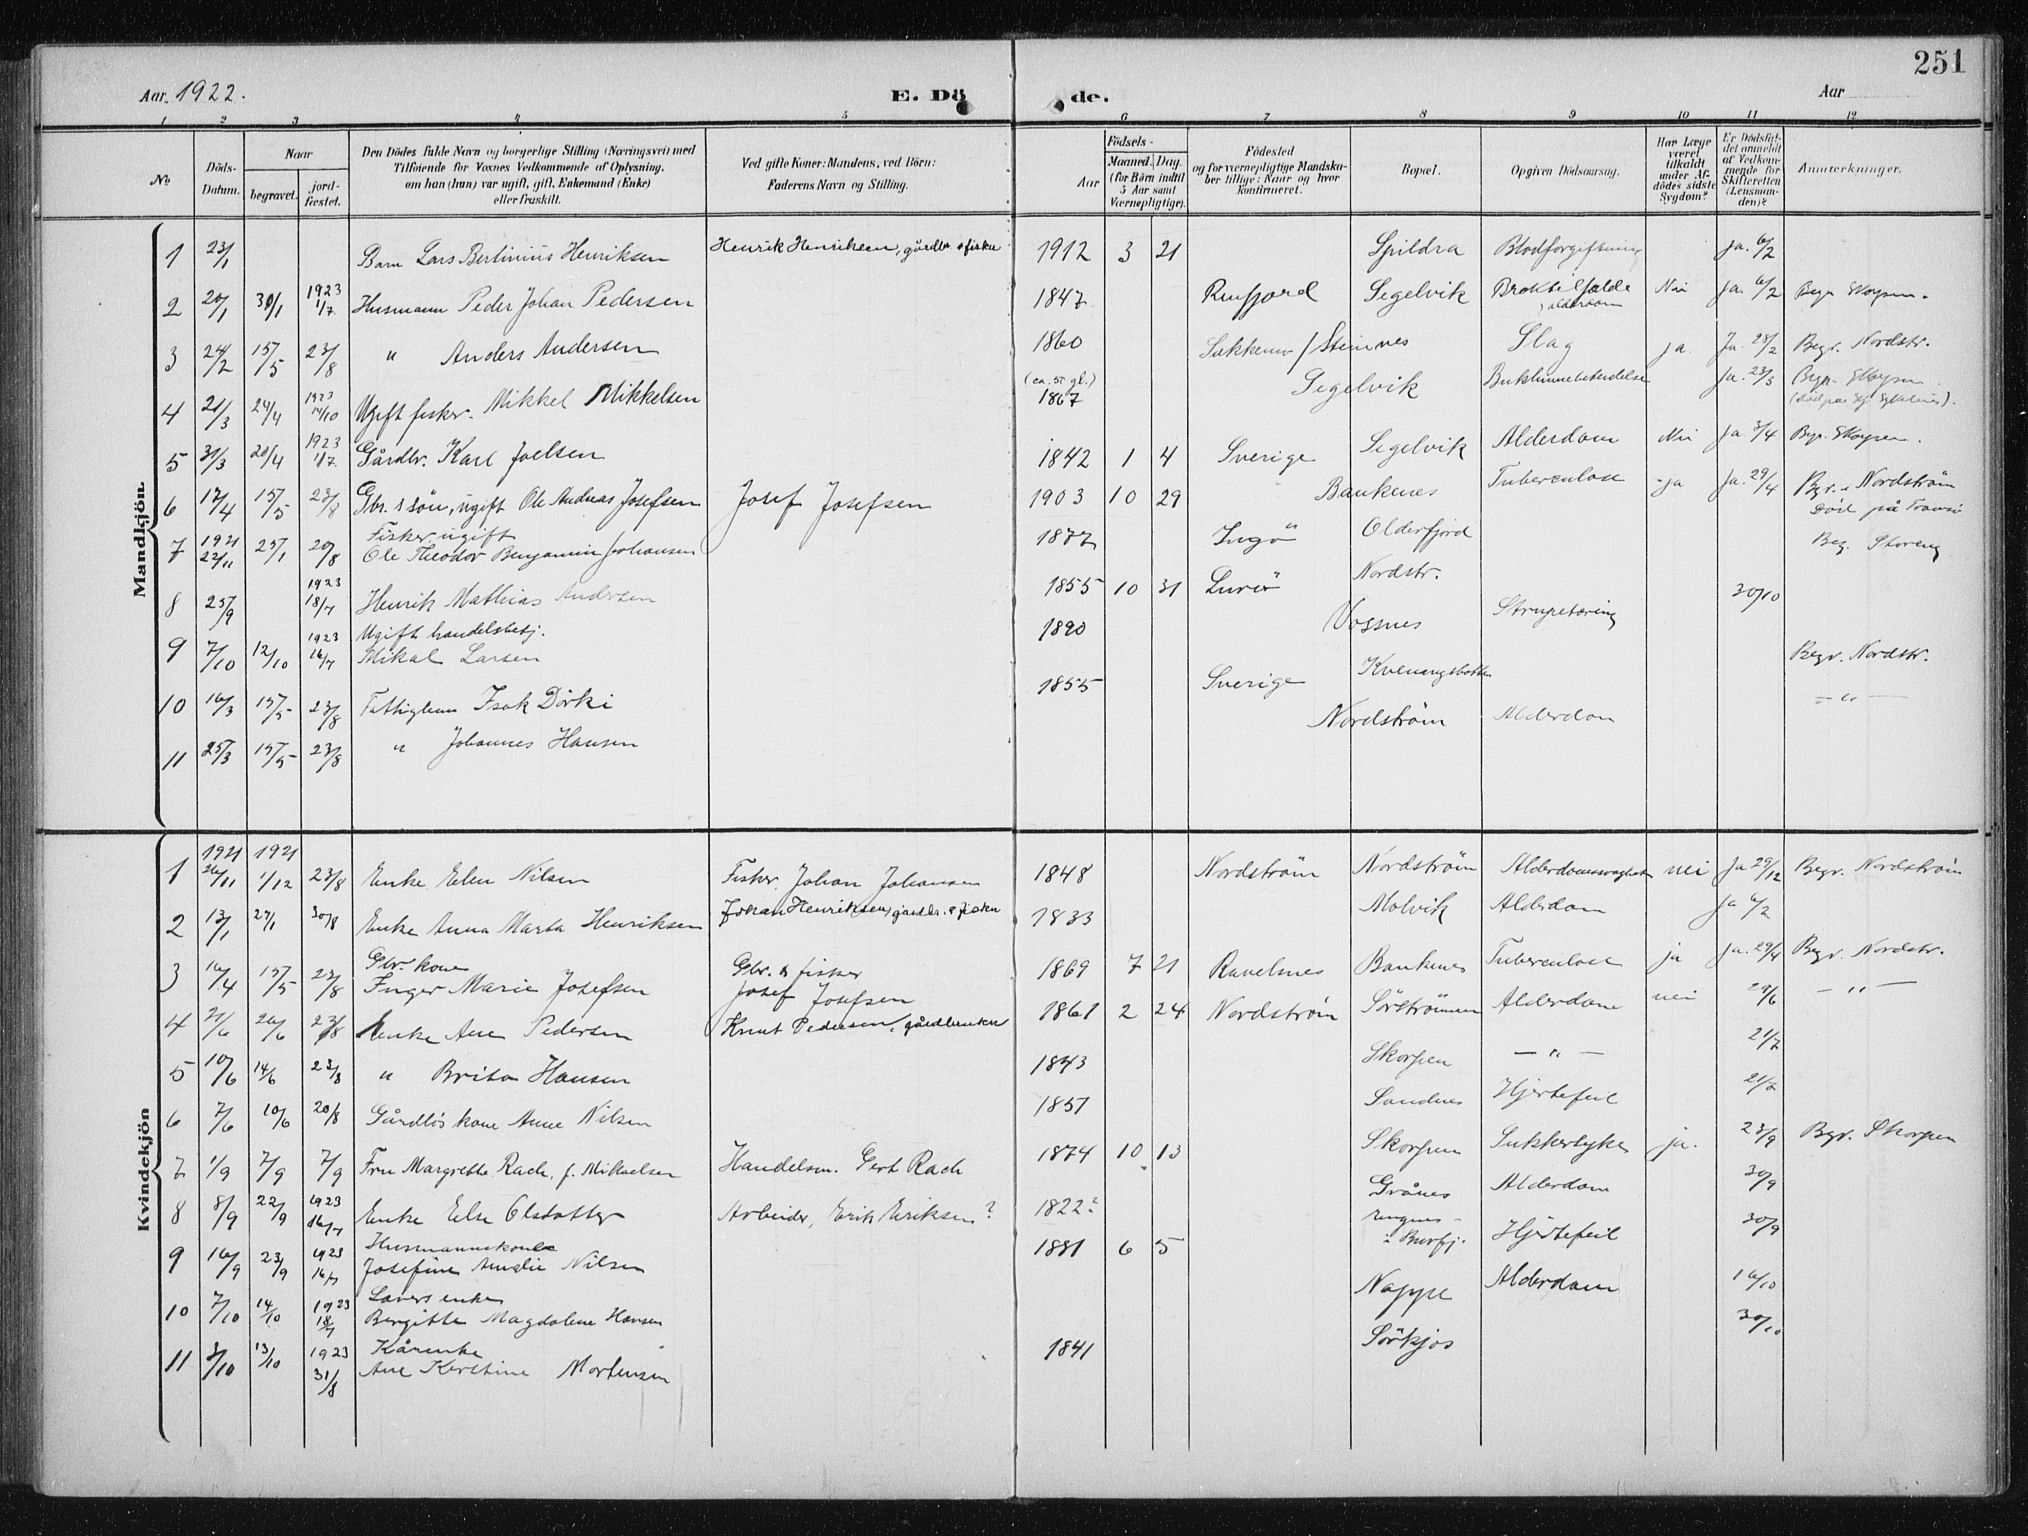 251
Aar 1922. E. Dö de. Aar
1 2 3 4 5 6 7 8 9 10 11 12
No
Döds-Datum.
Naar
begravet.
jord-fæstet.
Den Dödes fulde Navn og borgerlige Stilling (Næringsvei) med
Tilföiende for Voxnes Vedkommende af Oplysning,
om han (hun) var ugift, gift, Enkemand (Enke)
eller fraskilt.
Ved gifte Koner: Mandens, ved Börn:
Faderens Navn og Stilling.
Födsels-
Aar Maaned. Dag.
(for Börn indtil
5 Aar samt
Værnepligtige).
Födested
og for værnepligtige Mandska-
ber tillige: Naar og hvor
konfirmeret.
Bopæl.
Opgiven Dödsaarsag.
Har Læge
været
tilkaldt
under Af-
dödes sidste
Sygdom?
Er Dödsfal-
det anmeldt
af Vedkom-
mende for
Skifteretten
(Lensman-
den)?
Anmerkninger.
Mandkjön.
1 23/1 Barn Lars Bertinius Henriksen Henrik Henriksen, gårdbr & fisker 1912 3 21 Spildra Blodforgiftning ja. 6/2
2 20/1 30/1 1923 1/7 Husmann Peder Johan Pedersen 1847 Segelvik Nei ja. 6/2
3 24/2 15/5 23/8 " Anders Andersen 1860 Steinnes Slag ja. Ja. 28/2 Begr. Nordstr.
4 21/3 24/4 1923 14/10 Ugift fisker. Mikkel Mikkelsen (ca. 55 gl.) 1867 Segelvik Ja. 23/3
5 31/3 20/4 1923 1/7 Gårdbr. Karl Joelsen 1842 1 4 Sverige Segelvik Alderdom Nei Ja. 3/4
6 17/4 15/5 23/8 Gbr. s søn, ugift Ole Andreas Josefsen Josef Josefsen 1903 10 29 Baukenes Tuberculose ja Ja. 29/4 Begr. Nordstrøm
Død på Tromsø
7 1921 22/11 25/1 20/8 Fisker ugift
Ole Theodor Benjamin Johansen 1877 Ingö Olderfjord Beg. Storeng
8 25/9 1923 18/7 Henrik Mathias Andersen 1855 10 31 Lurö Nordstr. 30/10
9 7/10 12/10 1923 16/7 Ugift handelsbetj.
Mikal Larsen 1890 Vassnes Strupetæring
10 16/3 15/5 23/8 Isak Dörki 1855 Sverige Kvenangsbotten Begr. Nordstr.
11 25/3 15/5 23/8 " Johannes Hansen Nordström Alderdom — " —
Kvindekjön
1 1921 26/11 1921 1/12 23/8 Enke Elen Nilsen Fisker, Johan Johansen 1848 Nordström Nordström Alderdomssvaghet nei Ja 29/12 Begr. Nordström
2 13/1 27/1 30/8 Enke Anna Marta Henriksen Johan Henriksen, gårdbr. & fisker 1833 Molvik Alderdom ja 6/2
3 16/4 15/5 23/8 Gbr. kone
Inger Marie Josefsen Gbr. & fisker
Josef Josefsen 1869 7 21 Ravelsnes Baukenes Tuberculose ja ja. 29/4 Begr. Nordstr.
4 21/6 26/6 23/8 Enke Ane Pedersen Knut Pedersen, gårdbruker 1861 2 24 Nordström Sörströmmen Alderdom nei 29/6 — " —
5 10/6 14/6 23/8 " Brita Hansen 1843 Skorpen — " — 21/7
6 7/6 10/6 20/8 Gårdbrs kone Anne Nilsen 1857 Sandnes Hjertefeil 21/7
7 1/9 7/9 7/9 Fru Margrethe Rach, f. Mikaelsen Handelsm. Gert Rach 1874 10 13 Skorpen Sukkersyke ja. 23/9 Begr. Skorpen
8 8/9 22/9 1923 16/7 Enke Else Olsdatter Arbeider, Erik Eriksen? 1822? Grånes Alderdom 30/9
9 16/9 23/9 1923 16/7 Husmannskone
Josefine Amalie Nilsen 1881 6 5 i Burfj. Hjertefeil 30/9
10 7/10 14/10 1923 18/7 enke
Bergitte Magdalene Hansen Nappe Alderdom 16/10
11 3/10 13/10 1923 31/8 Kårenke
Ane Kerstine Mortensen 1841 Sörkjos 30/10